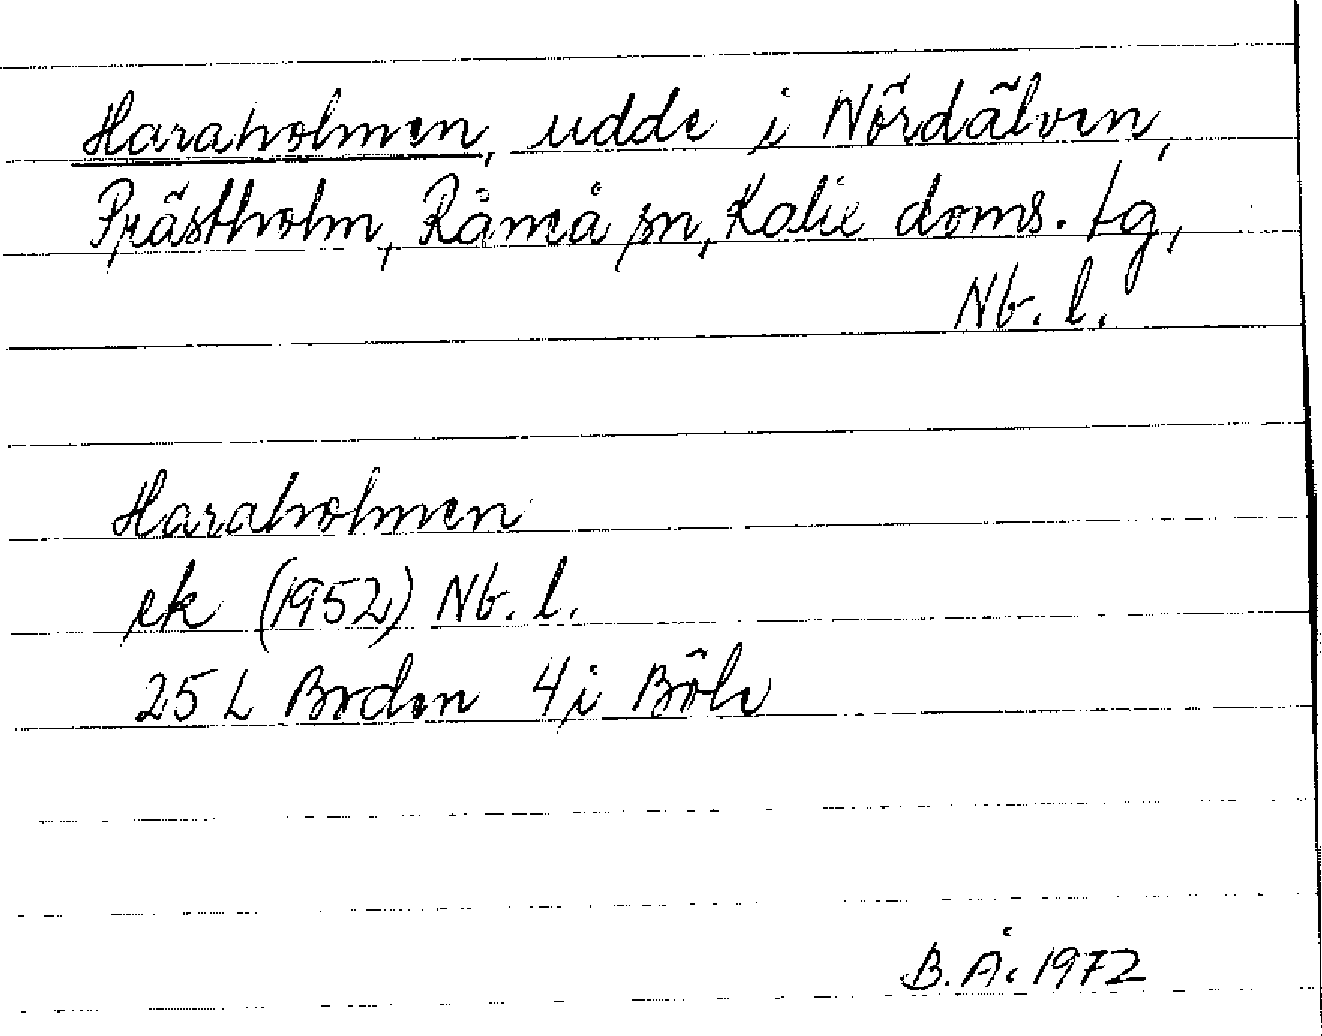 Haraholmen, udde i Nördälven,
Prästholm, Råneå sn, Kalix doms. tg,
Nb. l.
Haraholmen
ek (1952) Nb. l.
25 L Boden 4 i Böle
B.Å. 1972